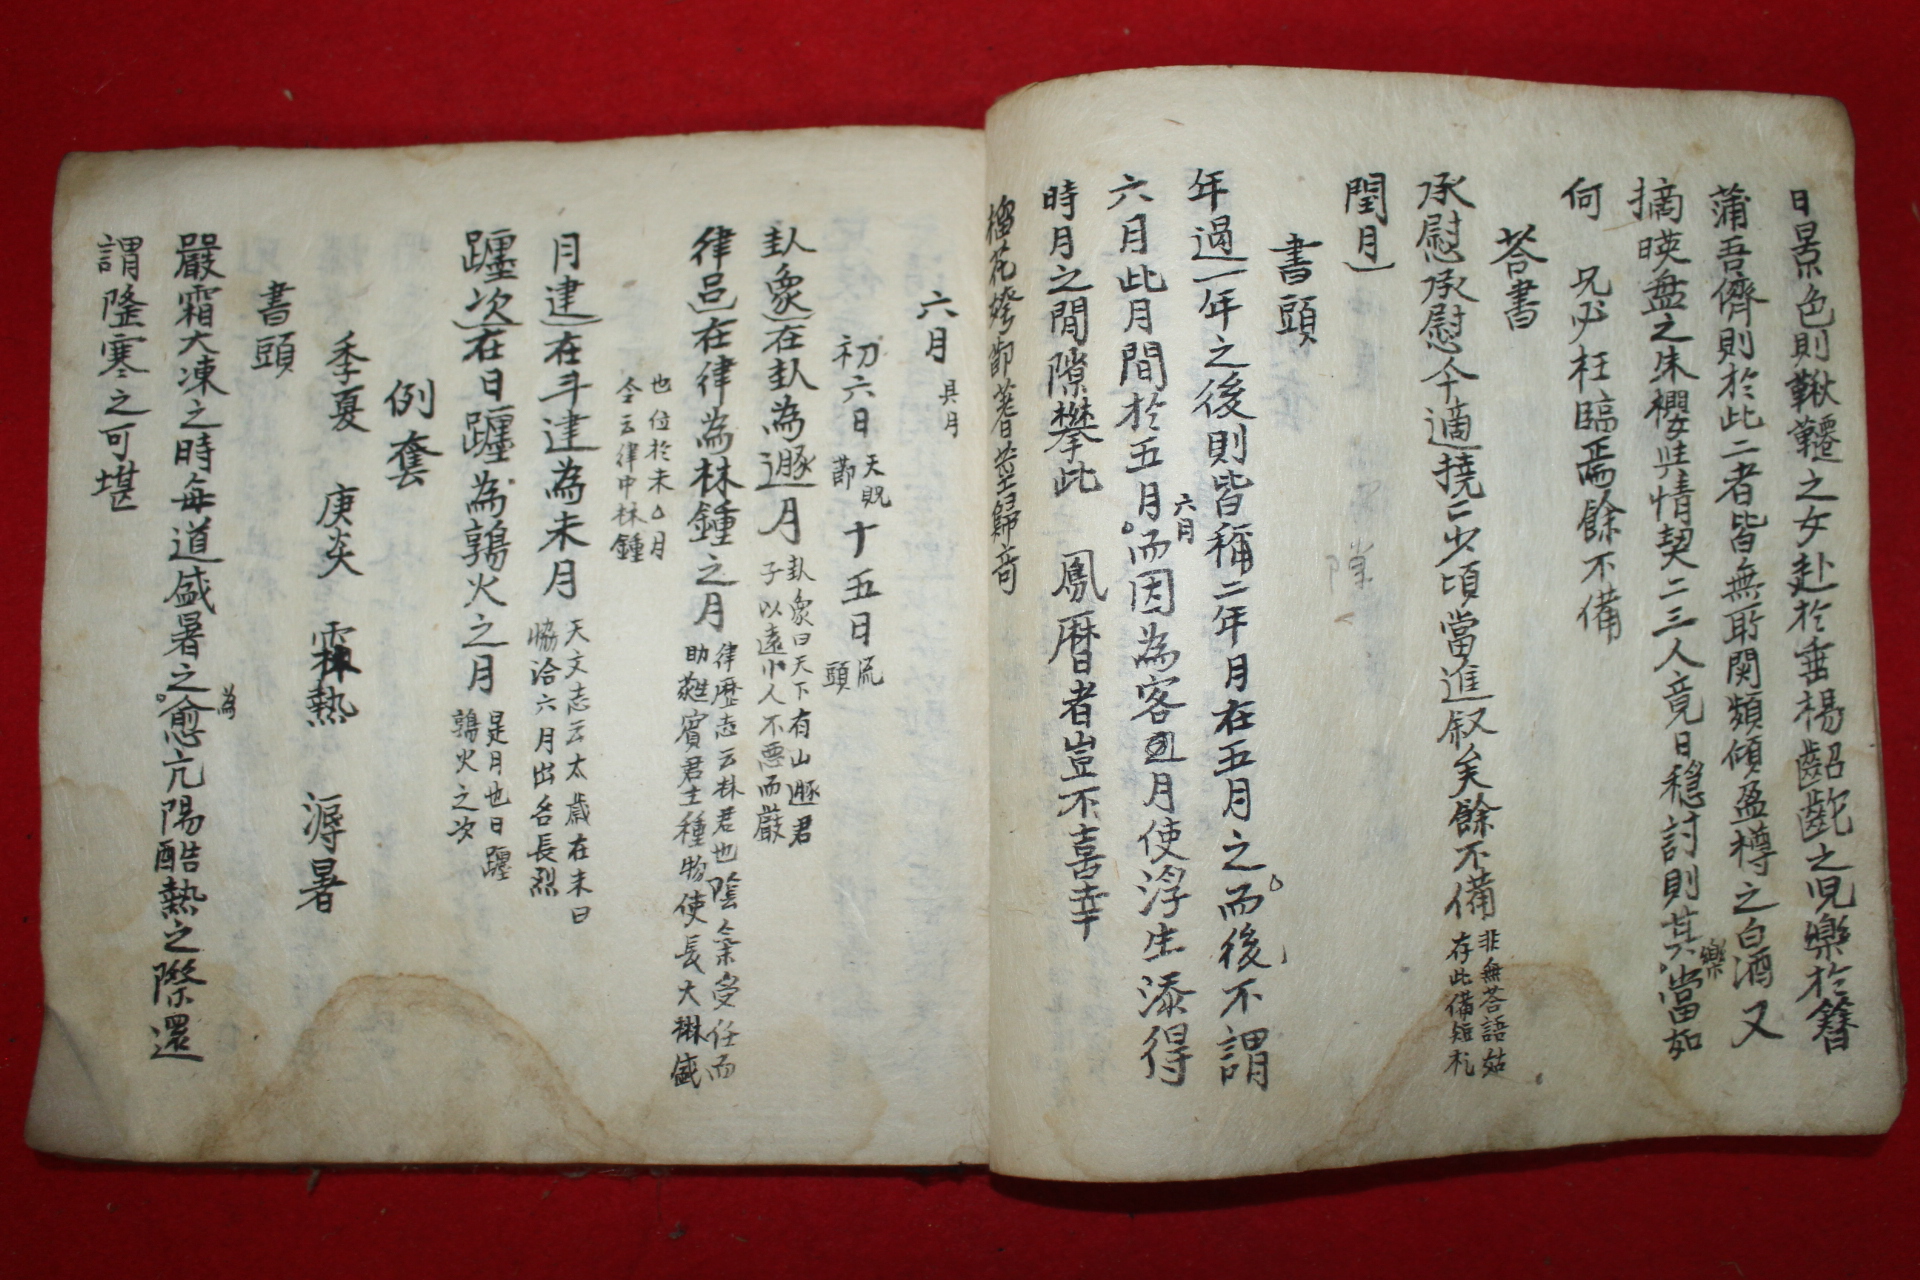 日景色則鞦韆之女赴於垂楊齠齔之児樂於簪
蒲吾儕則於此二者皆無所関頻傾盈樽之白酒又
摘暎盤之朱櫻与情契二三人竟日穩討則其樂當如
何 兄必枉臨焉餘不備
答書
承慰承慰今適撓二少頃當進叙矣餘不備
非無答語姑
存此備短札
閏月
書頭
年過一年之後則皆稱二年月在五月之而後不謂
六月此月間於五月六月而因為客月使浮生添得
時月之間隙攀此 鳳曆者豈不喜幸
榴花
六月
具月
初六日天貺節 十五日流頭
卦象在卦為遯月
卦象曰天下有山遯君
子以遠小人不惡而嚴
律呂在律為林鍾之月
律歷志云林君也陰氣受任而
助蕤賓君主種物使長大楙盛
也位於未月
令云律中林鍾
月建在斗建為未月
天文志云太歲在未曰
協洽六月出名長烈
躔次在日躔為鶉火之月
是月也日躔
鶉火之次
例套
季夏 庚炎 霖熱 溽暑
書頭
嚴霜大凍之時每道盛暑之為愈亢陽酷熱之際還
謂隆寒之可堪